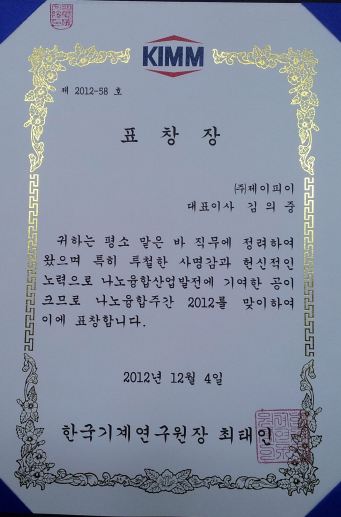 KIMM
제 2012-58 호
표 창 장
㈜제이피이
대표이사 김 의 중
귀하는 평소 맡은 바 직무에 정려하여
왔으며 특히 투철한 사명감과 헌신적인
노력으로 나노융합산업발전에 기여한 공이
크므로 나노융합주간 2012를 맞이하여
이에 표창합니다.
2012년 12월 4일
한국기계연구원장 최태인